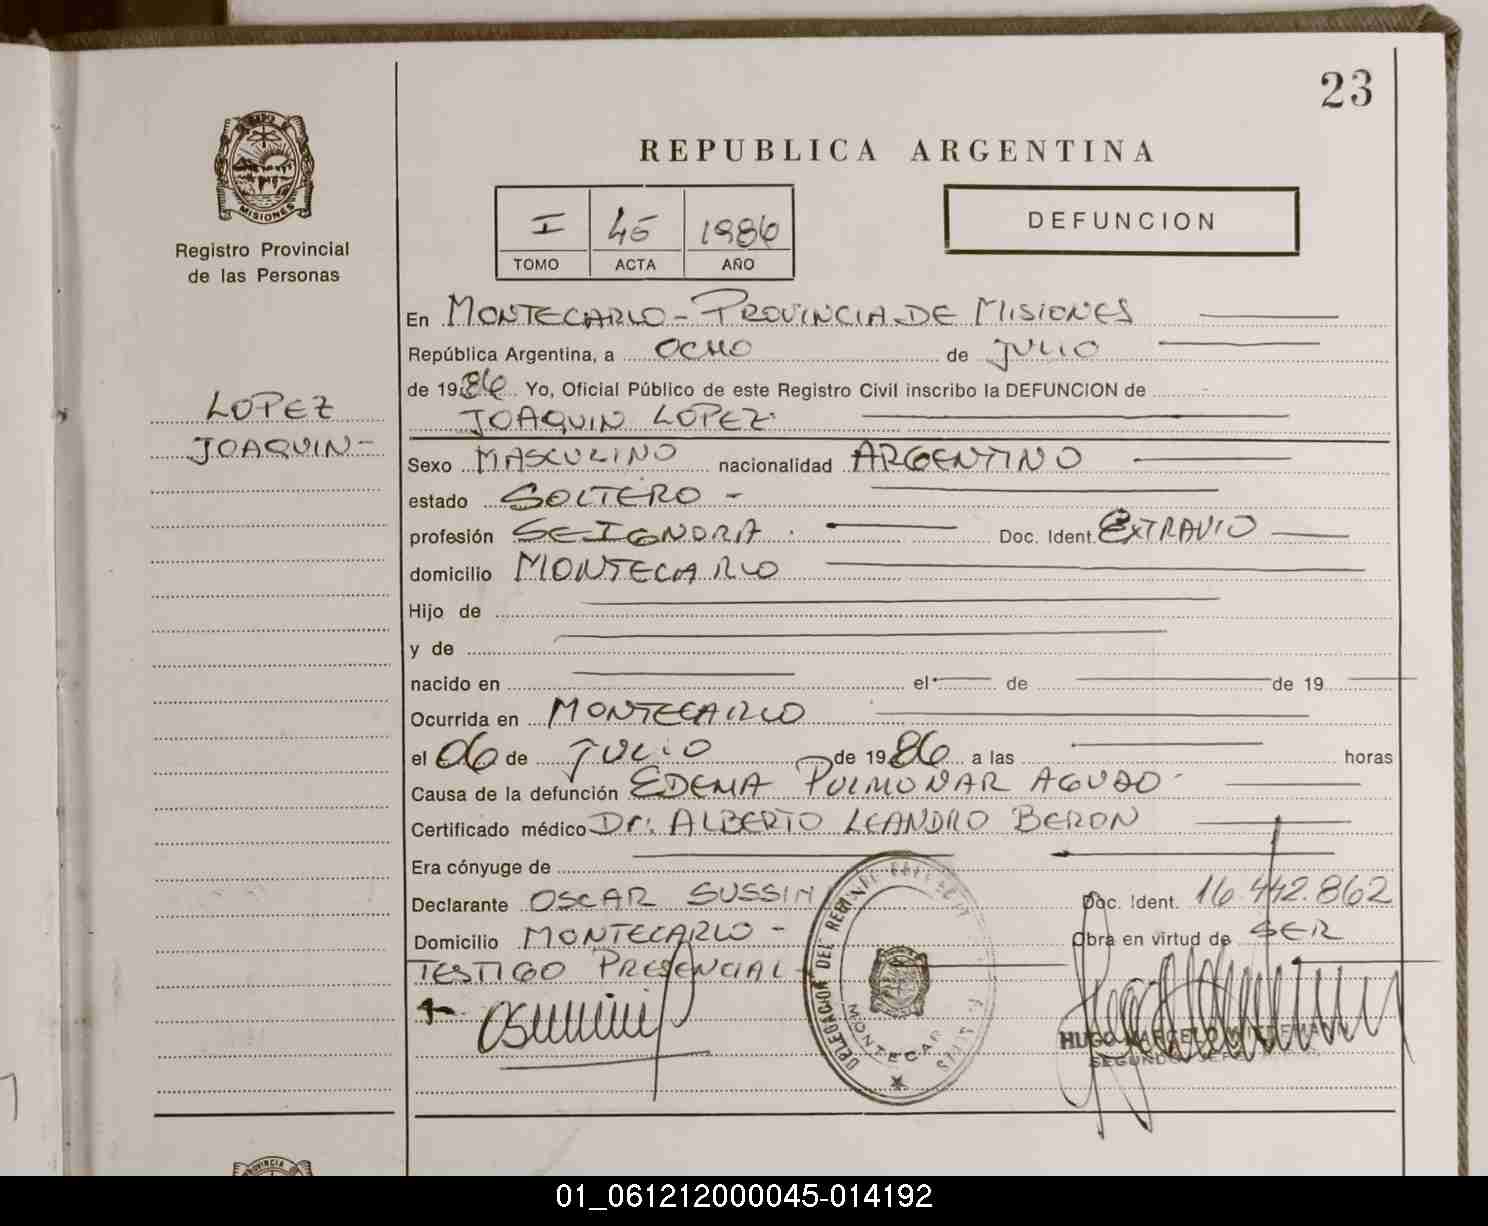 23
REPUBLICA ARGENTINA
MISIONES
Registro Provincial
de las Personas
I 45 1986
TOMO ACTA AÑO
DEFUNCION
En MONTECARLO - PROVINCIA DE MISIONES
República Argentina, a OCHO de JULIO
de 1986 Yo, Oficial Público de este Registro Civil inscribo la DEFUNCION de
JOAQUIN LOPEZ
LOPEZ
JOAQUIN -
Sexo MASCULINO nacionalidad ARGENTINO
estado SOLTERO -
profesión SE IGNORA Doc. Ident. EXTRAVIO
domicilio MONTECARLO
Hijo de
y de
nacido en el de de 19
Ocurrida en MONTECARLO
el 06 de JULIO de 1986 a las horas
Causa de la defunción EDEMA PULMONAR AGUDO
Certificado médico Dr. ALBERTO LEANDRO BERON
Era cónyuge de
Declarante OSCAR SUSSINI Doc. Ident. 16.442.862
Domicilio MONTECARLO - Obra en virtud de SER
TESTIGO PRESENCIAL -
DELEGACION DEL
MONTECAR
HUGO
SEGUNDO JEFE
PROVINCIA
01_061212000045-014192